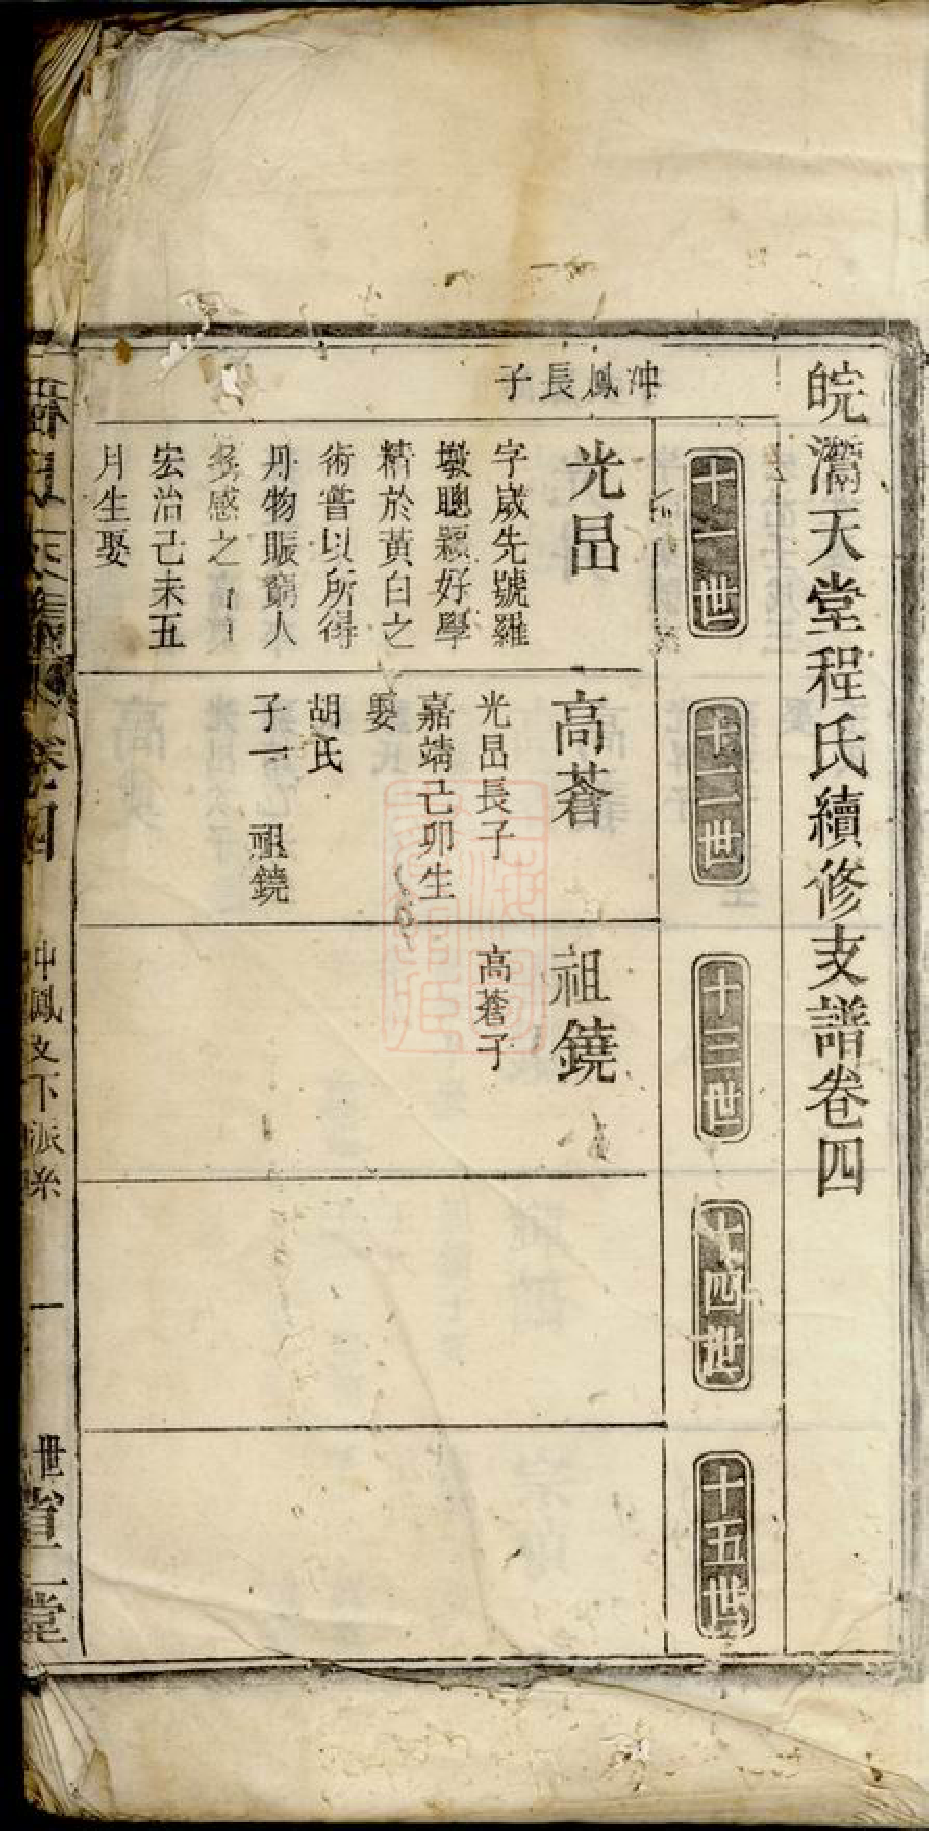 皖灊天堂程氏續修支譜卷四
十一世
十二世
十三世
十四世
十五世
冲鳳長子
光昺
字歲先號羅
墩聰穎好學
精於黃白之
術嘗以所得
丹物賑窮人
多感之
宏治己未五
月生娶
高蒼
光昺長子
嘉靖己卯生
娶
胡氏
子一 祖鐃
祖鐃
高蒼子
卷四
冲鳳支下派系
一
世省堂